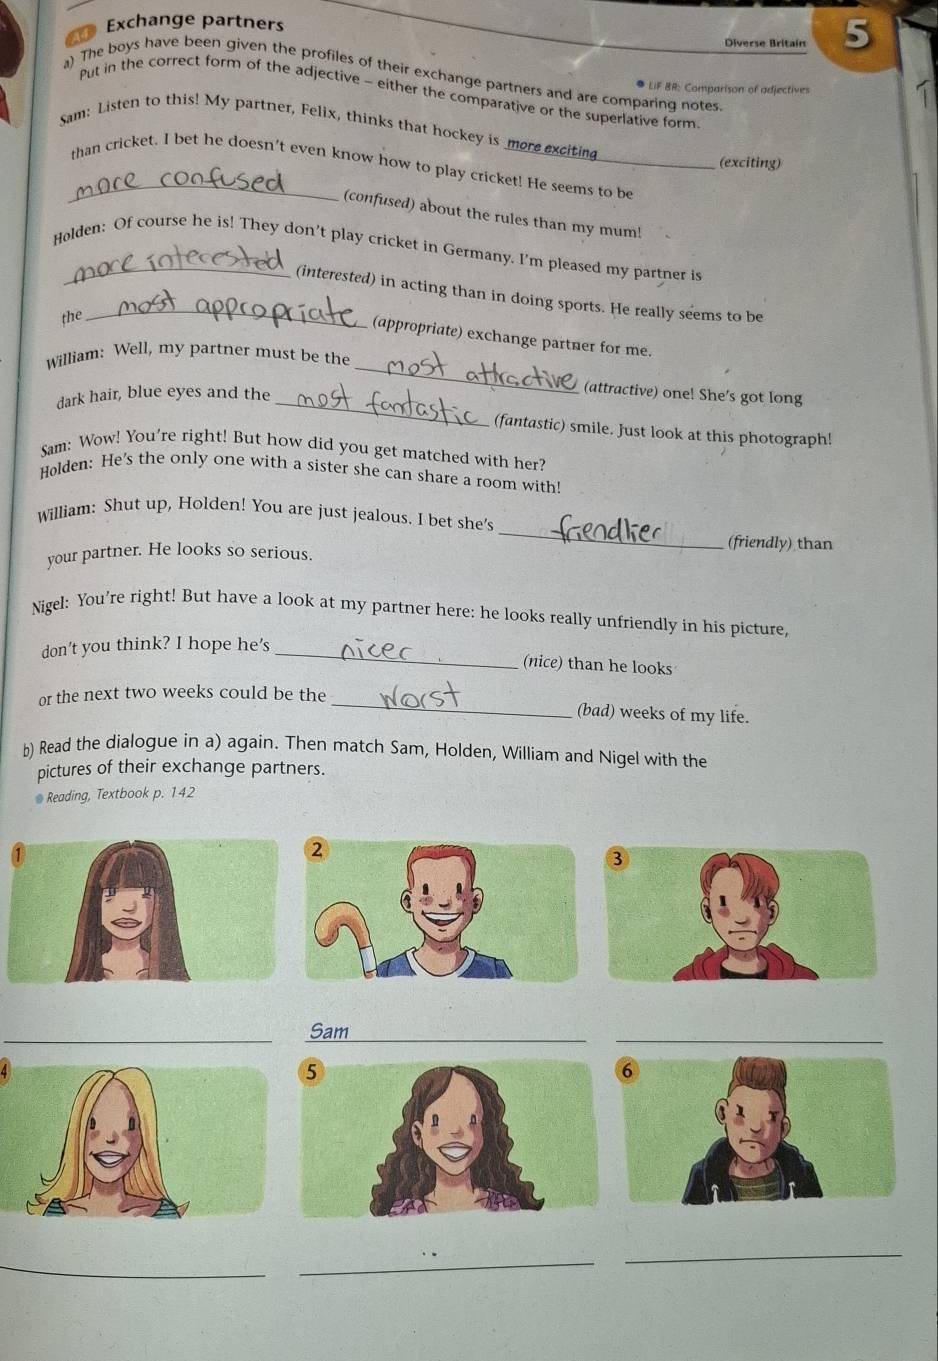 A4 Exchange partners
Diverse Britain 5
a) The boys have been given the profiles of their exchange partners and are comparing notes.
Put in the correct form of the adjective – either the comparative or the superlative form.
LiF 8R: Comparison of adjectives
Sam: Listen to this! My partner, Felix, thinks that hockey is more exciting (exciting)
than cricket. I bet he doesn't even know how to play cricket! He seems to be
more confused (confused) about the rules than my mum!
Holden: Of course he is! They don't play cricket in Germany. I'm pleased my partner is
more interested (interested) in acting than in doing sports. He really seems to be
the most appropriate (appropriate) exchange partner for me.
William: Well, my partner must be the most attractive (attractive) one! She's got long
dark hair, blue eyes and the most fantastic (fantastic) smile. Just look at this photograph!
Sam: Wow! You're right! But how did you get matched with her?
Holden: He's the only one with a sister she can share a room with!
William: Shut up, Holden! You are just jealous. I bet she's friendlier (friendly) than
your partner. He looks so serious.
Nigel: You're right! But have a look at my partner here: he looks really unfriendly in his picture,
don't you think? I hope he's nicer (nice) than he looks
or the next two weeks could be the worst (bad) weeks of my life.
b) Read the dialogue in a) again. Then match Sam, Holden, William and Nigel with the
pictures of their exchange partners.
Reading, Textbook p. 142
1 2 3
Sam
4 5 6